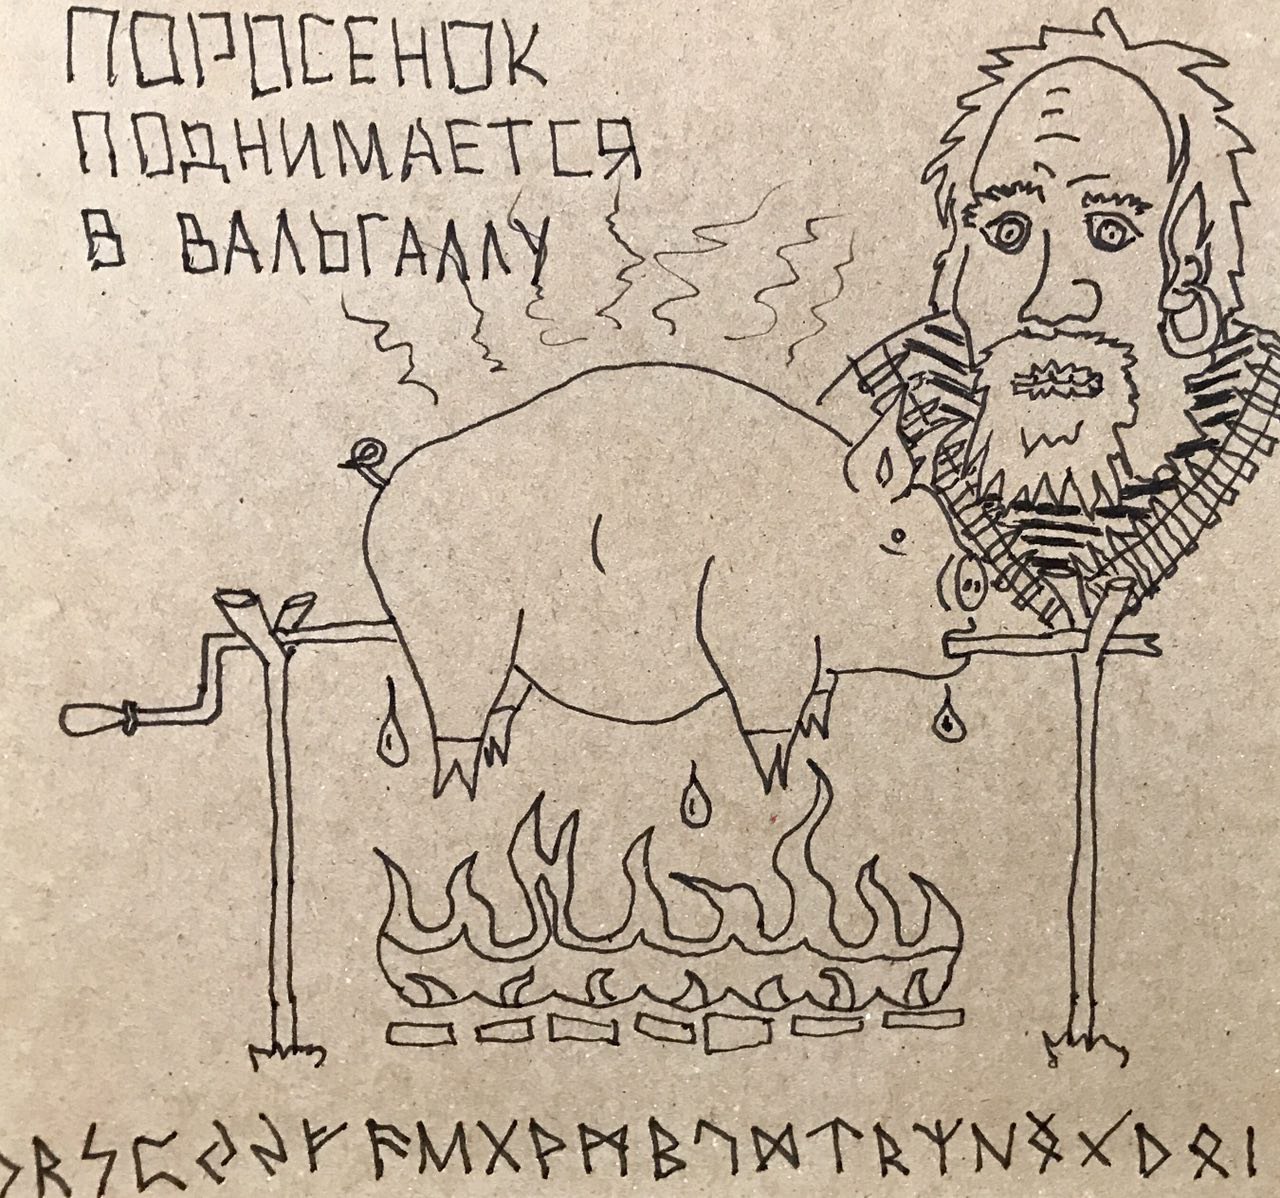 ПОРОСЕНОК
ПОДНИМАЕТСЯ
В ВАЛЬГАЛЛУ